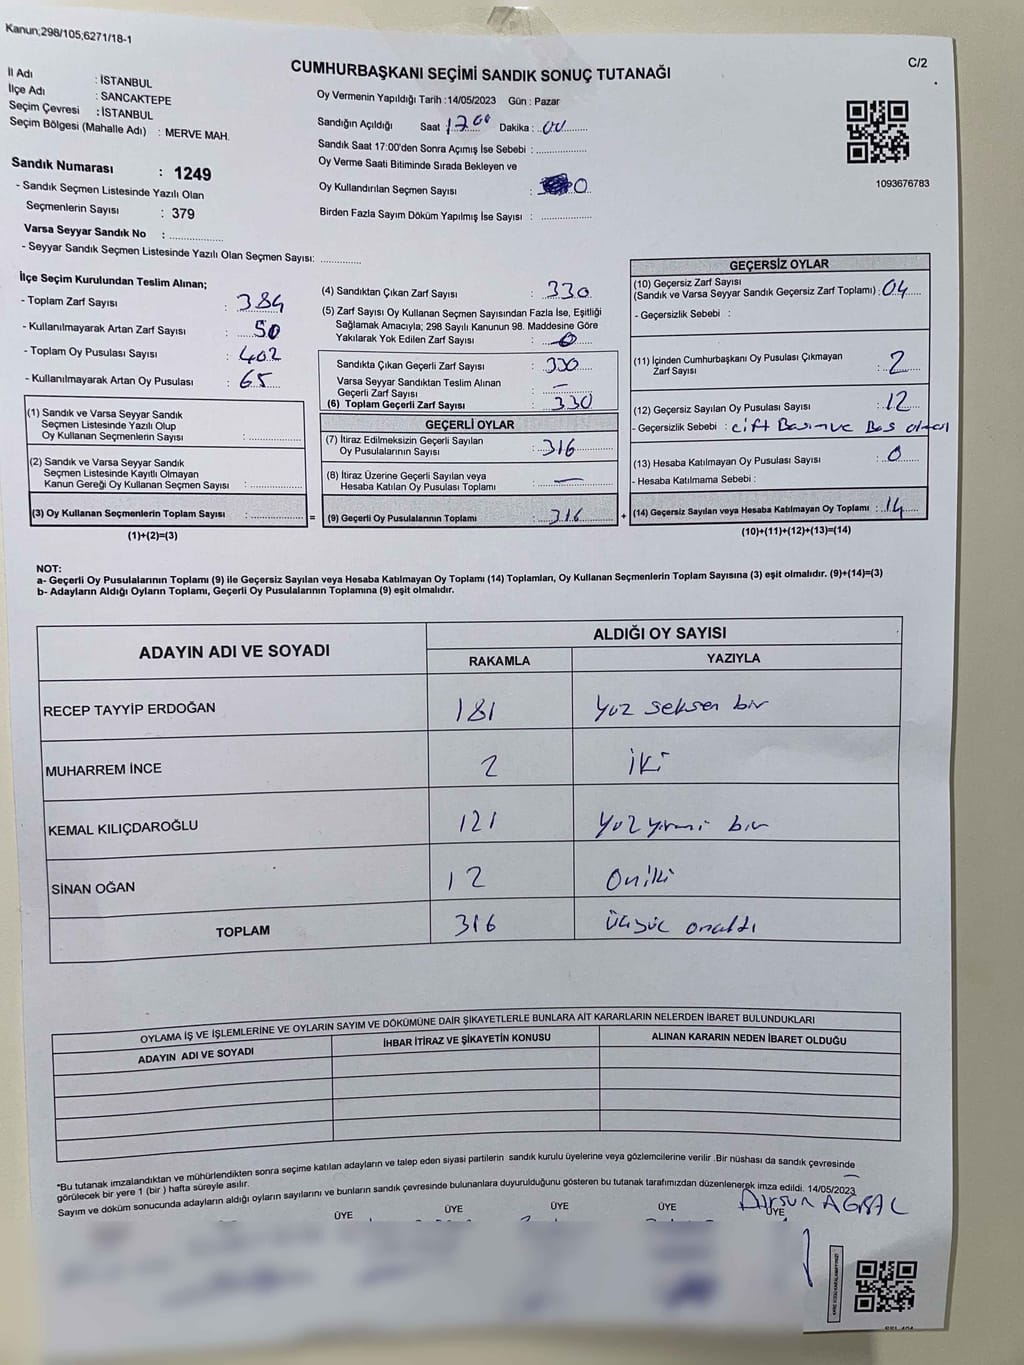 Kanun;298/105,6271/18-1
C/2
CUMHURBAŞKANI SEÇİMİ SANDIK SONUÇ TUTANAĞI
İl Adı : İSTANBUL
İlçe Adı : SANCAKTEPE
Seçim Çevresi : İSTANBUL
Seçim Bölgesi (Mahalle Adı) : MERVE MAH.
Sandık Numarası : 1249
- Sandık Seçmen Listesinde Yazılı Olan
Seçmenlerin Sayısı : 379
Varsa Seyyar Sandık No : ..................
- Seyyar Sandık Seçmen Listesinde Yazılı Olan Seçmen Sayısı: .............
Oy Vermenin Yapıldığı Tarih :14/05/2023 Gün : Pazar
Sandığın Açıldığı Saat 17 00 Dakika : 00
Sandık Saat 17:00'den Sonra Açımış İse Sebebi : ................
Oy Verme Saati Bitiminde Sırada Bekleyen ve
Oy Kullandırılan Seçmen Sayısı : 0
Birden Fazla Sayım Döküm Yapılmış İse Sayısı : ................
1093676783
İlçe Seçim Kurulundan Teslim Alınan;
- Toplam Zarf Sayısı : 384
- Kullanılmayarak Artan Zarf Sayısı : 50
- Toplam Oy Pusulası Sayısı : 402
- Kullanılmayarak Artan Oy Pusulası : 65
(1) Sandık ve Varsa Seyyar Sandık
Seçmen Listesinde Yazılı Olup
Oy Kullanan Seçmenlerin Sayısı : ................
(2) Sandık ve Varsa Seyyar Sandık
Seçmen Listesinde Kayıtlı Olmayan
Kanun Gereği Oy Kullanan Seçmen Sayısı : ................
(3) Oy Kullanan Seçmenlerin Toplam Sayısı : ................
(1)+(2)=(3)
(4) Sandıktan Çıkan Zarf Sayısı : 330
(5) Zarf Sayısı Oy Kullanan Seçmen Sayısından Fazla İse, Eşitliği
Sağlamak Amacıyla; 298 Sayılı Kanunun 98. Maddesine Göre
Yakılarak Yok Edilen Zarf Sayısı : 0
Sandıkta Çıkan Geçerli Zarf Sayısı : 330
Varsa Seyyar Sandıktan Teslim Alınan
Geçerli Zarf Sayısı : —
(6) Toplam Geçerli Zarf Sayısı : 330
GEÇERLİ OYLAR
(7) İtiraz Edilmeksizin Geçerli Sayılan
Oy Pusulalarının Sayısı : 316
(8) İtiraz Üzerine Geçerli Sayılan veya
Hesaba Katılan Oy Pusulası Toplamı : —
= (9) Geçerli Oy Pusulalarının Toplamı : 316 +
GEÇERSİZ OYLAR
(10) Geçersiz Zarf Sayısı
(Sandık ve Varsa Seyyar Sandık Geçersiz Zarf Toplamı) : 04
- Geçersizlik Sebebi :
(11) İçinden Cumhurbaşkanı Oy Pusulası Çıkmayan
Zarf Sayısı : 2
(12) Geçersiz Sayılan Oy Pusulası Sayısı : 12
- Geçersizlik Sebebi : çift Basım ve Boş olması
(13) Hesaba Katılmayan Oy Pusulası Sayısı : 0
- Hesaba Katılmama Sebebi :
(14) Geçersiz Sayılan veya Hesaba Katılmayan Oy Toplamı : 14
(10)+(11)+(12)+(13)=(14)
NOT:
a- Geçerli Oy Pusulalarının Toplamı (9) ile Geçersiz Sayılan veya Hesaba Katılmayan Oy Toplamı (14) Toplamları, Oy Kullanan Seçmenlerin Toplam Sayısına (3) eşit olmalıdır. (9)+(14)=(3)
b- Adayların Aldığı Oyların Toplamı, Geçerli Oy Pusulalarının Toplamına (9) eşit olmalıdır.
ADAYIN ADI VE SOYADI
ALDIĞI OY SAYISI
RAKAMLA YAZIYLA
RECEP TAYYİP ERDOĞAN 181 yüz seksen bir
MUHARREM İNCE 2 iki
KEMAL KILIÇDAROĞLU 121 yüz yirmi bir
SİNAN OĞAN 12 Oniki
TOPLAM 316 üçyüz onaltı
OYLAMA İŞ VE İŞLEMLERİNE VE OYLARIN SAYIM VE DÖKÜMÜNE DAİR ŞİKAYETLERLE BUNLARA AİT KARARLARIN NELERDEN İBARET BULUNDUKLARI
ADAYIN ADI VE SOYADI İHBAR İTİRAZ VE ŞİKAYETİN KONUSU ALINAN KARARIN NEDEN İBARET OLDUĞU
*Bu tutanak imzalandıktan ve mühürlendikten sonra seçime katılan adayların ve talep eden siyasi partilerin sandık kurulu üyelerine veya gözlemcilerine verilir .Bir nüshası da sandık çevresinde
görülecek bir yere 1 (bir ) hafta süreyle asılır.
Sayım ve döküm sonucunda adayların aldığı oyların sayılarını ve bunların sandık çevresinde bulunanlara duyurulduğunu gösteren bu tutanak tarafımızdan düzenlenerek imza edildi. 14/05/2023
ÜYE ÜYE ÜYE ÜYE ÜYE
Dursun AĞBAL